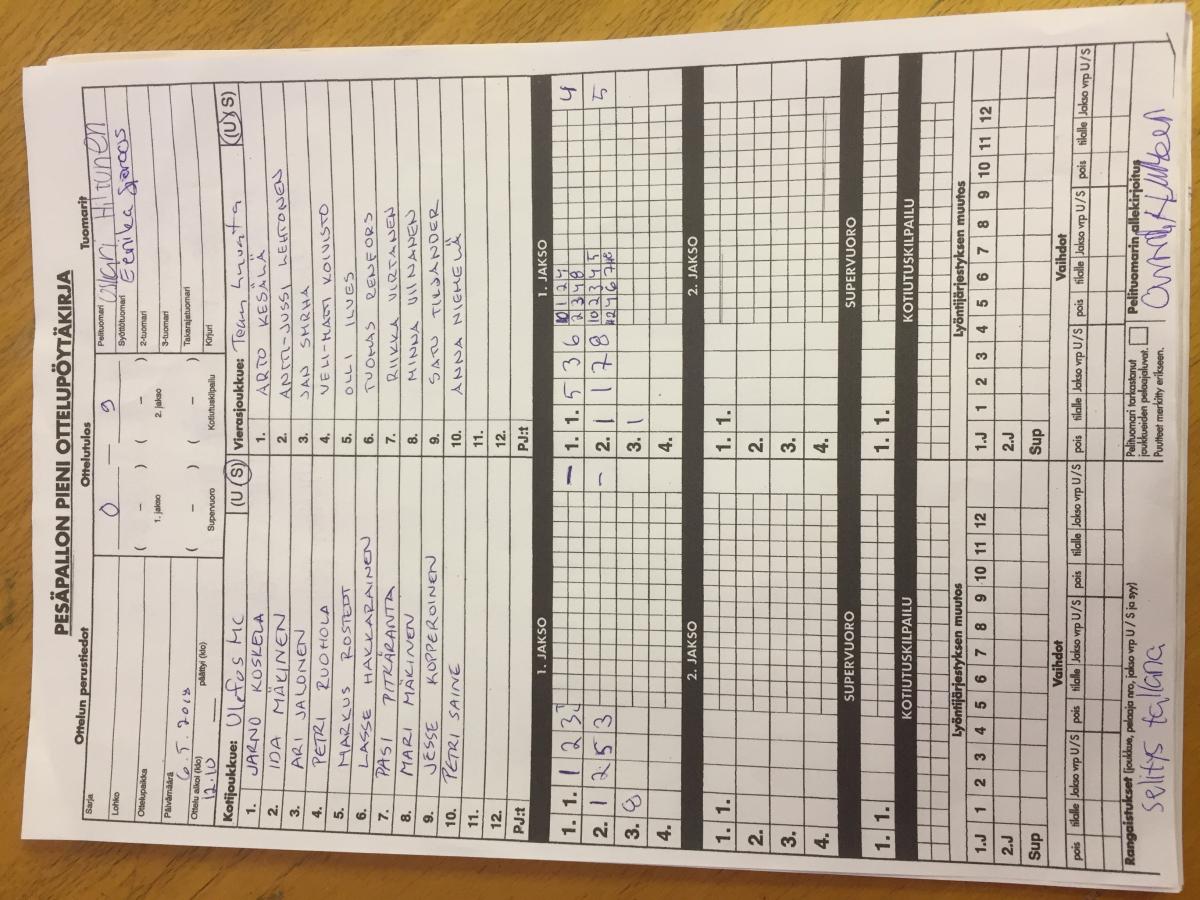 PESÄPALLON PIENI OTTELUPÖYTÄKIRJA
Ottelun perustiedot Ottelutulos Tuomarit
Sarja
Lohko
Ottelupaikka
Päivämäärä 6.5.2018
Ottelu alkoi (klo) 12.10 päättyi (klo)
0 – 9
( – ) ( – )
1. jakso 2. jakso
( – ) ( – )
Supervuoro Kotiutuskilpailu
Pelituomari Hiltunen
Syöttötuomari Eerika
2-tuomari
3-tuomari
Takarajatuomari
Kirjuri
Kotijoukkue: Ulofos MC (U/S)
1. JARNO KOSKELA
2. IDA MÄKINEN
3. ARI JALONEN
4. PETRI RUOHOLA
5. MARKUS ROSTEDT
6. LASSE HAKKARAINEN
7. PASI PITKÄRANTA
8. MARI MÄKINEN
9. JESSE KOPPEROINEN
10. PETRI SAINE
11.
12.
PJ:t
Vierasjoukkue: Team huusta (U/S)
1. ARTO KESÄLÄ
2. ANTTI-JUSSI LEHTONEN
3. JAN SMRHA
4. VELI-MATTI KOIVISTO
5. OLLI ILVES
6. TUOMAS RENFORS
7. RIIKKA VIRTANEN
8. MINNA VIINANEN
9. SATU TILJANDER
10. ANNA NIEMELÄ
11.
12.
PJ:t
1. JAKSO 1. JAKSO
1. 1. 1 2 3 – 1. 1. 5 3 6 4
2. 1 2 5 3 – 2. 1 1 7 8 5
3. 8 3. 1
4. 4.
2. JAKSO 2. JAKSO
1. 1. 1. 1.
2. 2.
3. 3.
4. 4.
SUPERVUORO SUPERVUORO
1. 1. 1. 1.
KOTIUTUSKILPAILU KOTIUTUSKILPAILU
Lyöntijärjestyksen muutos Lyöntijärjestyksen muutos
1.J 1 2 3 4 5 6 7 8 9 10 11 12 1.J 1 2 3 4 5 6 7 8 9 10 11 12
2.J 2.J
Sup Sup
Vaihdot Vaihdot
pois tilalle Jakso vrp U/S pois tilalle Jakso vrp U/S pois tilalle Jakso vrp U/S pois tilalle Jakso vrp U/S pois tilalle Jakso vrp U/S pois tilalle Jakso vrp U/S
Rangaistukset (joukkue, pelaaja nro, jakso vrp U / S ja syy)
selitys takana
Pelituomari tarkastanut
joukkueiden pelaajaluvat.
Puutteet merkitty erikseen.
Pelituomarin allekirjoitus